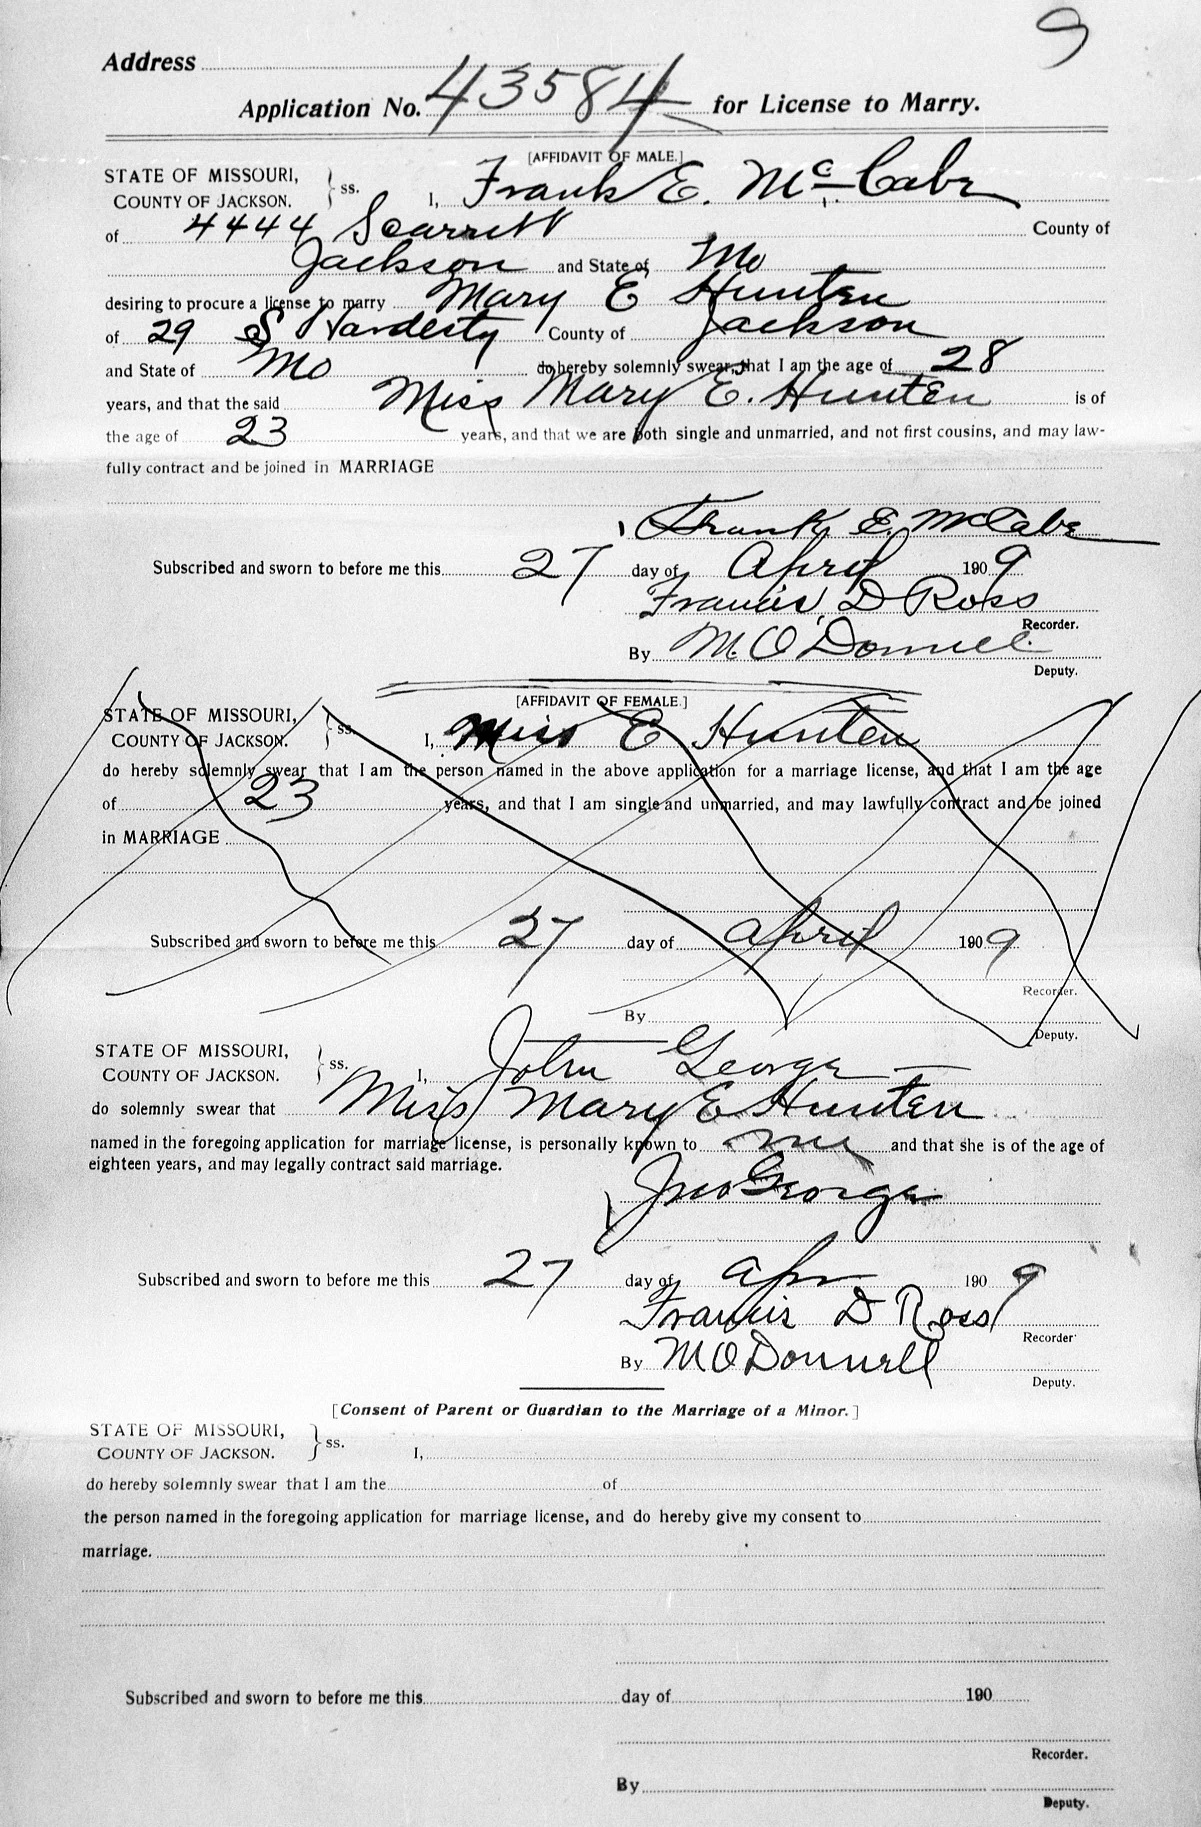 9
Address
Application No. 43584 for License to Marry.
[AFFIDAVIT OF MALE.]
STATE OF MISSOURI,
COUNTY OF JACKSON. } ss. I, Frank E. McCabe
of 4444 Scarritt County of
Jackson and State of Mo
desiring to procure a license to marry Mary E Hunten
of 29 S Hardesty County of Jackson
and State of Mo do hereby solemnly swear, that I am the age of 28
years, and that the said Miss Mary E. Hunten is of
the age of 23 years, and that we are both single and unmarried, and not first cousins, and may law-
fully contract and be joined in MARRIAGE
Frank E. McCabe
Subscribed and sworn to before me this 27 day of April 1909
Francis D Ross
Recorder.
By M. O'Donnell
Deputy.
[AFFIDAVIT OF FEMALE.]
STATE OF MISSOURI,
COUNTY OF JACKSON. } ss. I, Miss E Hunten
do hereby solemnly swear that I am the person named in the above application for a marriage license, and that I am the age
of 23 years, and that I am single and unmarried, and may lawfully contract and be joined
in MARRIAGE
Subscribed and sworn to before me this 27 day of April 1909
Recorder.
By
Deputy.
STATE OF MISSOURI,
COUNTY OF JACKSON. } ss. I, John George
do solemnly swear that Miss Mary E Hunten
named in the foregoing application for marriage license, is personally known to me and that she is of the age of
eighteen years, and may legally contract said marriage.
Jno George
Subscribed and sworn to before me this 27 day of Apr 1909
Francis D Ross
Recorder
By M O Donnell
Deputy.
[Consent of Parent or Guardian to the Marriage of a Minor.]
STATE OF MISSOURI,
COUNTY OF JACKSON. } ss. I,
do hereby solemnly swear that I am the of
the person named in the foregoing application for marriage license, and do hereby give my consent to
marriage.
Subscribed and sworn to before me this day of 190
Recorder.
By
Deputy.